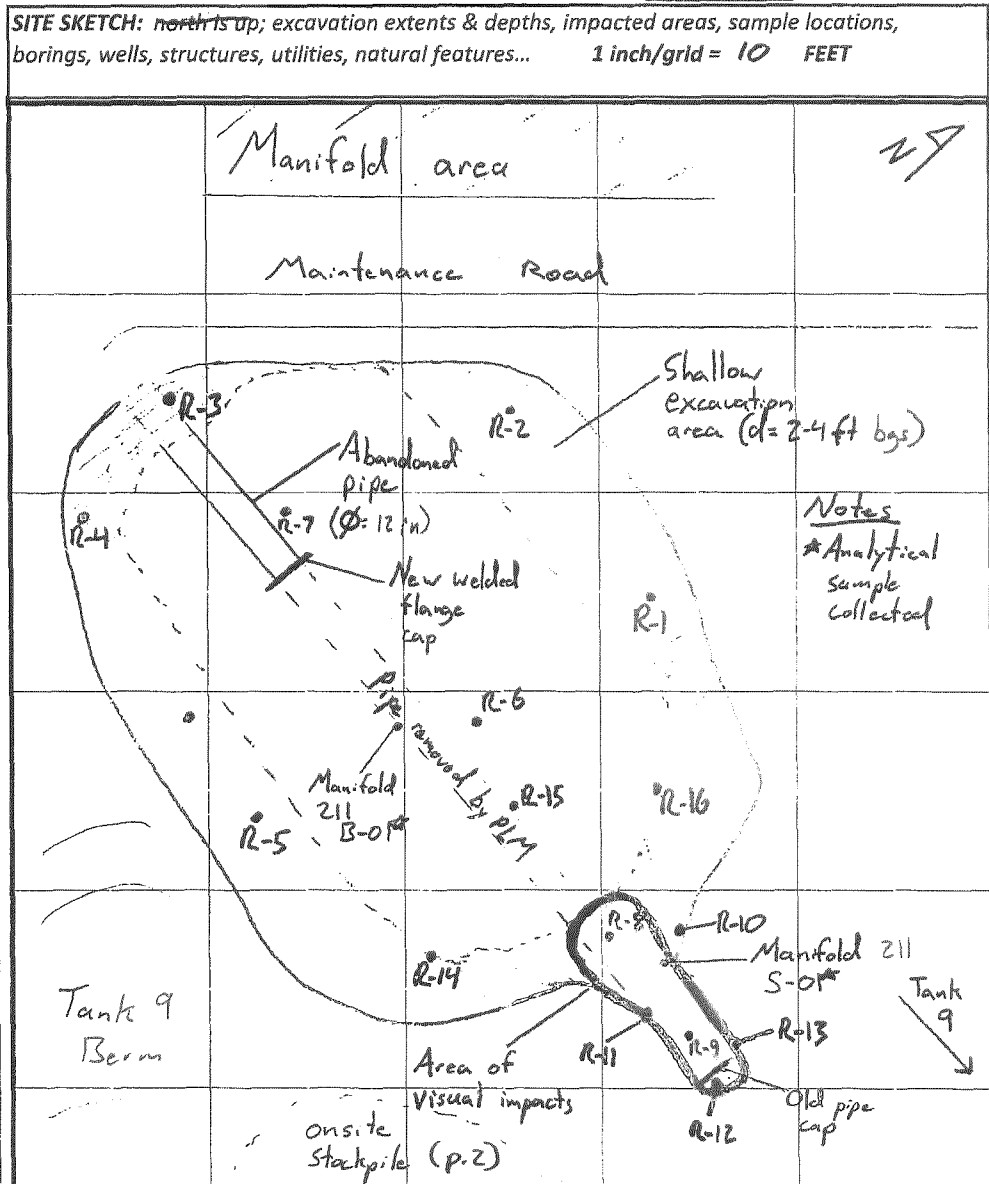 SITE SKETCH: north is up; excavation extents & depths, impacted areas, sample locations,
borings, wells, structures, utilities, natural features... 1 inch/grid = 10 FEET
Manifold area
N
Maintenance Road
Shallow
excavation
area (d= 2-4 ft bgs)
R-3
R-2
Abandoned
pipe
(Ø= 12 in)
R-7
R-4
Notes
*Analytical
sample
collected
New welded
flange
cap
R-1
Pipe removed by PLM
R-6
Manifold
211
B-01*
R-15
R-16
R-5
R-8
R-10
Manifold 211
S-01*
R-14
Tank 9
Berm
Tank
9
R-11
R-9
R-13
Area of
visual impacts
Old pipe
cap
R-12
onsite
stockpile (p.2)